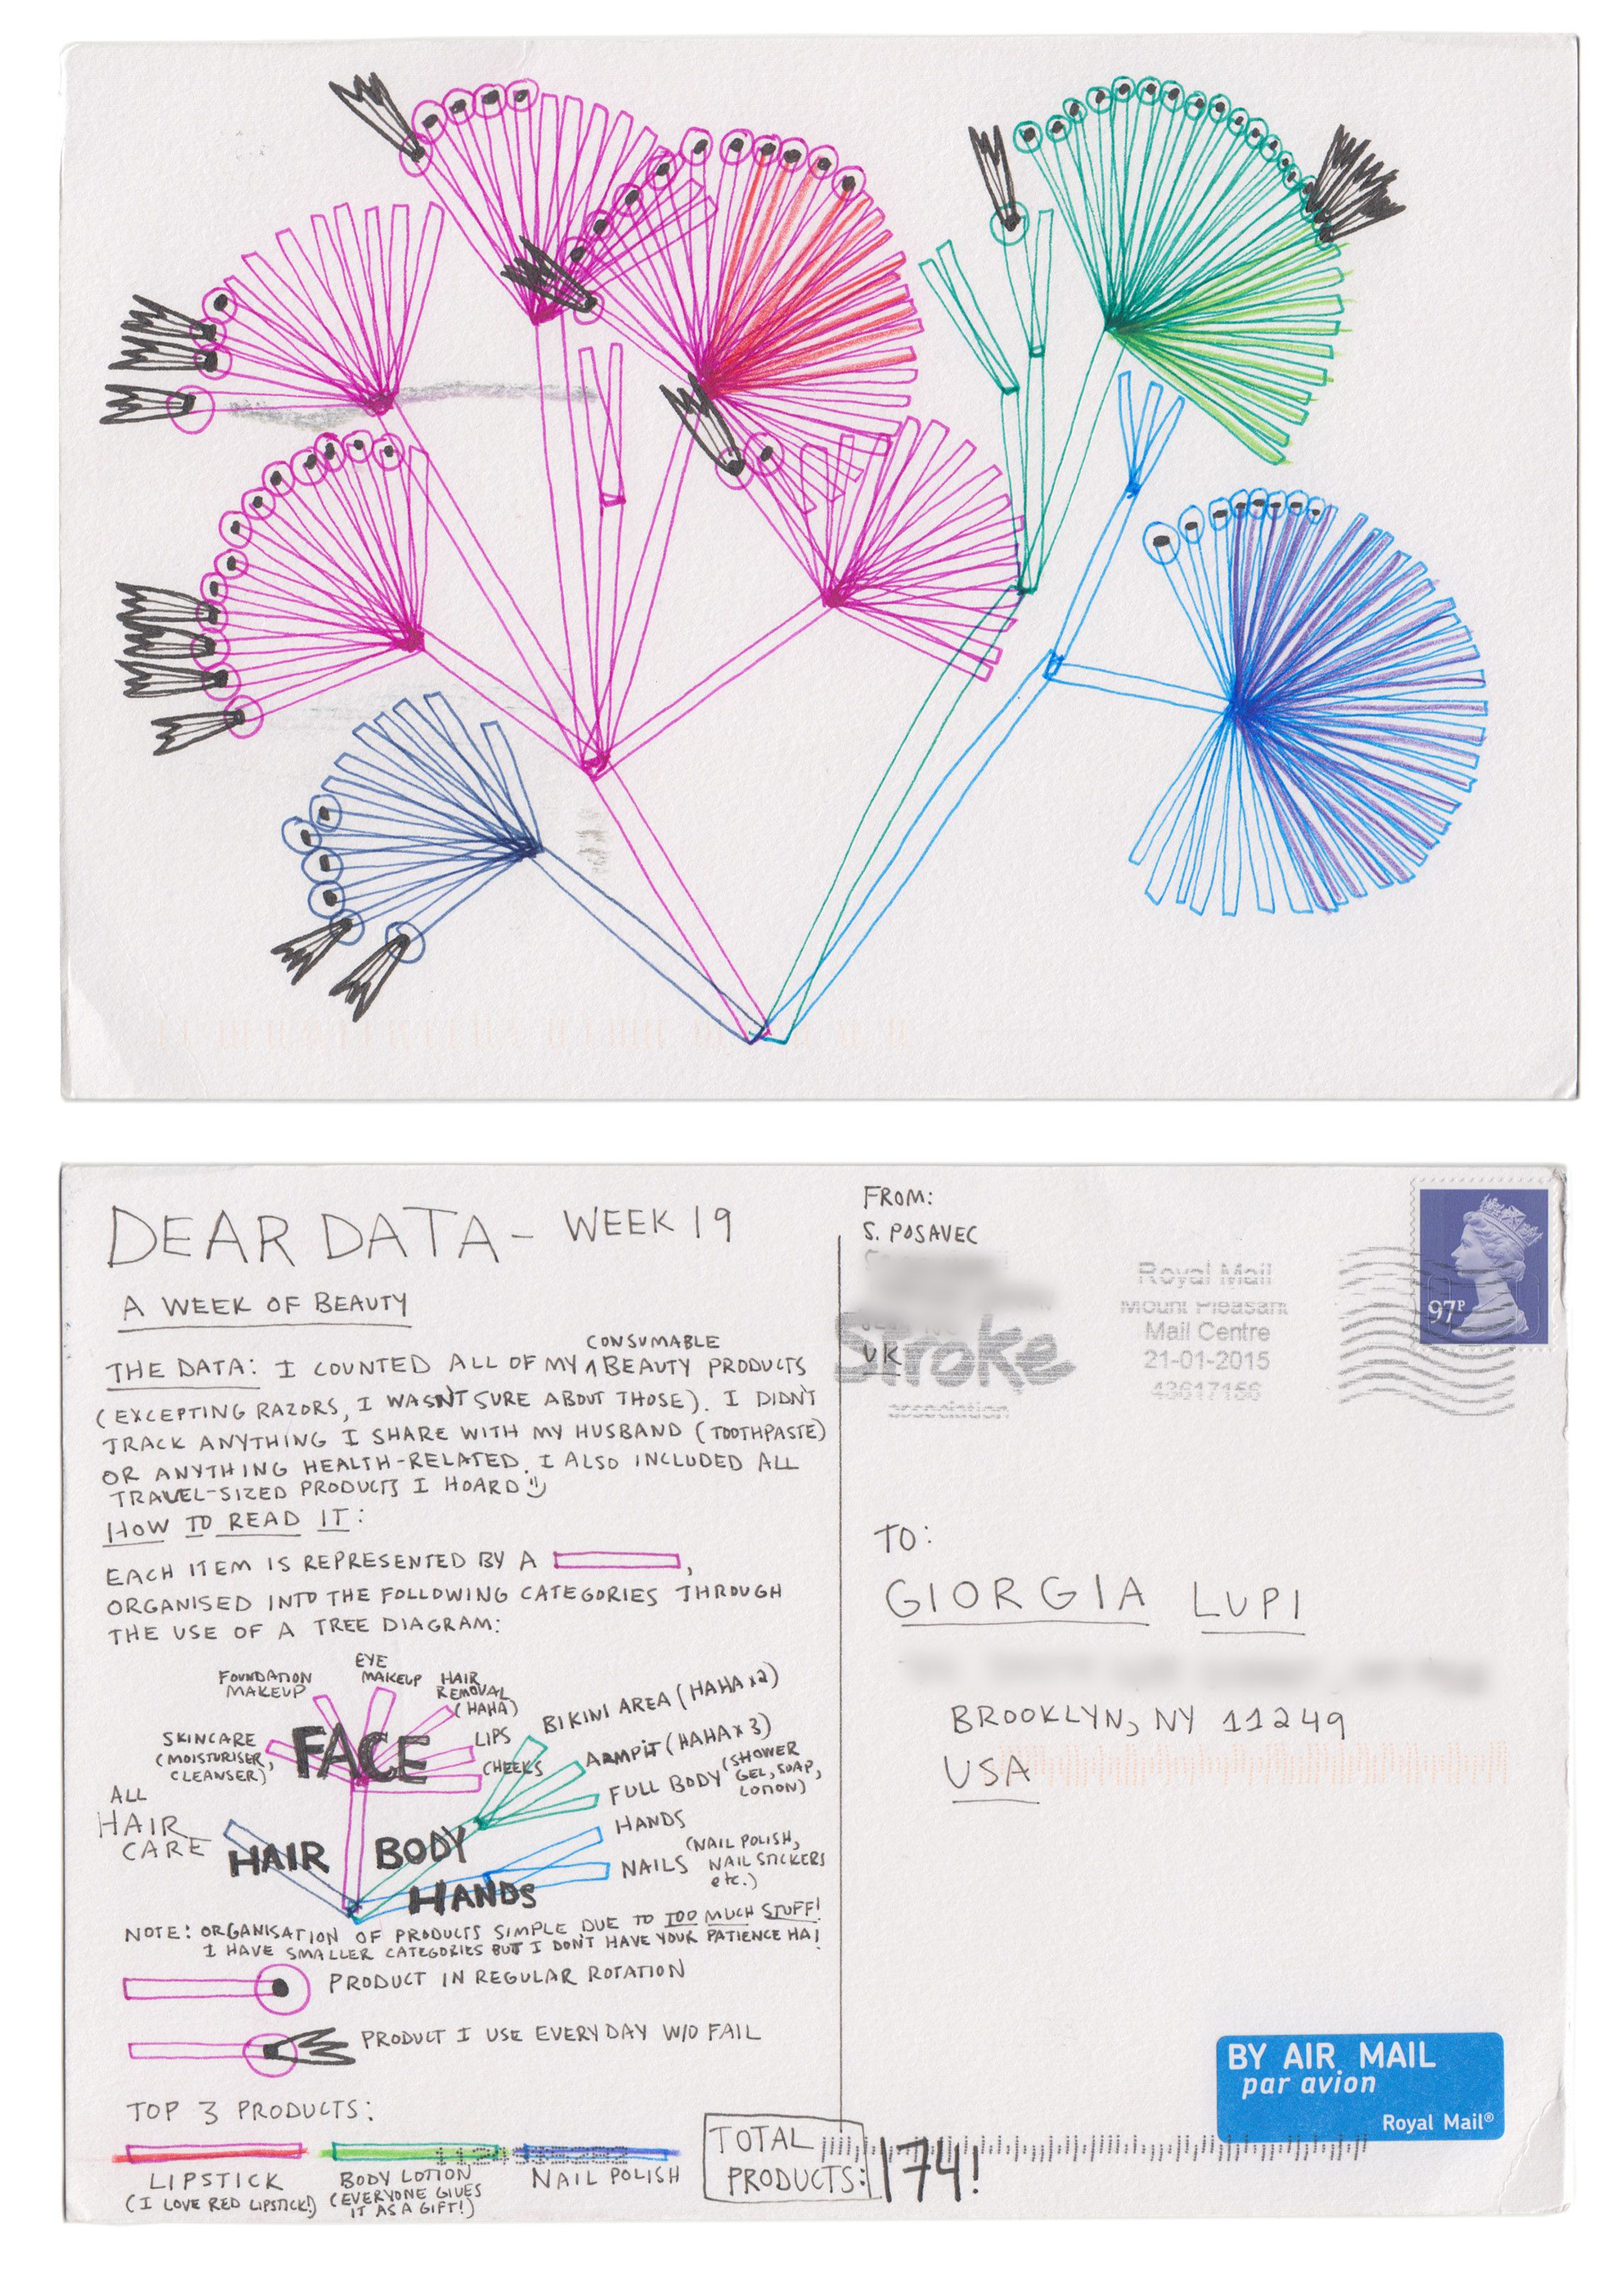 DEAR DATA - WEEK 19
A WEEK OF BEAUTY
CONSUMABLE
THE DATA: I COUNTED ALL OF MY ^ BEAUTY PRODUCTS
(EXCEPTING RAZORS, I WASN'T SURE ABOUT THOSE). I DIDN'T
TRACK ANYTHING I SHARE WITH MY HUSBAND (TOOTHPASTE)
OR ANYTHING HEALTH-RELATED. I ALSO INCLUDED ALL
TRAVEL-SIZED PRODUCTS I HOARD
HOW TO READ IT:
EACH ITEM IS REPRESENTED BY A ,
ORGANISED INTO THE FOLLOWING CATEGORIES THROUGH
THE USE OF A TREE DIAGRAM:
FOUNDATION
MAKEUP
EYE
MAKEUP
HAIR
REMOVAL
(HAHA)
SKINCARE
(MOISTURISER,
CLEANSER)
FACE
LIPS
CHEEKS
BIKINI AREA (HAHA x2)
ARMPIT (HAHA x 3)
FULL BODY (SHOWER
GEL, SOAP,
LOTION)
ALL
HAIR
CARE
HAIR
BODY
HANDS
HANDS
NAILS (NAIL POLISH,
NAIL STICKERS
etc.)
NOTE: ORGANISATION OF PRODUCTS SIMPLE DUE TO TOO MUCH STUFF!
I HAVE SMALLER CATEGORIES BUT I DON'T HAVE YOUR PATIENCE HA!
PRODUCT IN REGULAR ROTATION
PRODUCT I USE EVERYDAY W/O FAIL
TOP 3 PRODUCTS:
LIPSTICK
(I LOVE RED LIPSTICK!)
BODY LOTION
(EVERYONE GIVES
IT AS A GIFT!)
NAIL POLISH
TOTAL
PRODUCTS: 174!
FROM:
S. POSAVEC
UK
Stroke
association
Royal Mail
Mount Pleasant
Mail Centre
21-01-2015
43617156
97P
TO:
GIORGIA LUPI
BROOKLYN, NY 11249
USA
BY AIR MAIL
par avion
Royal Mail®